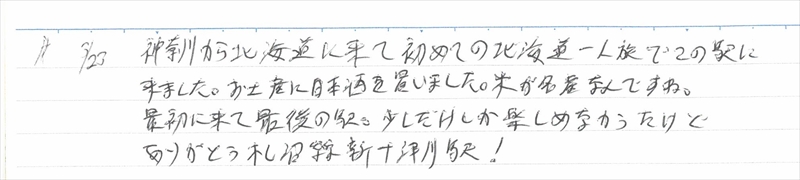 7/23 神奈川から北海道に来て初めての北海道一人旅でこの駅に
来ました。お土産に日本酒を買いました。米が名産なんですね。
最初に来て最後の駅。少しだけしか楽しめなかったけど
ありがとう札沼線新十津川駅!